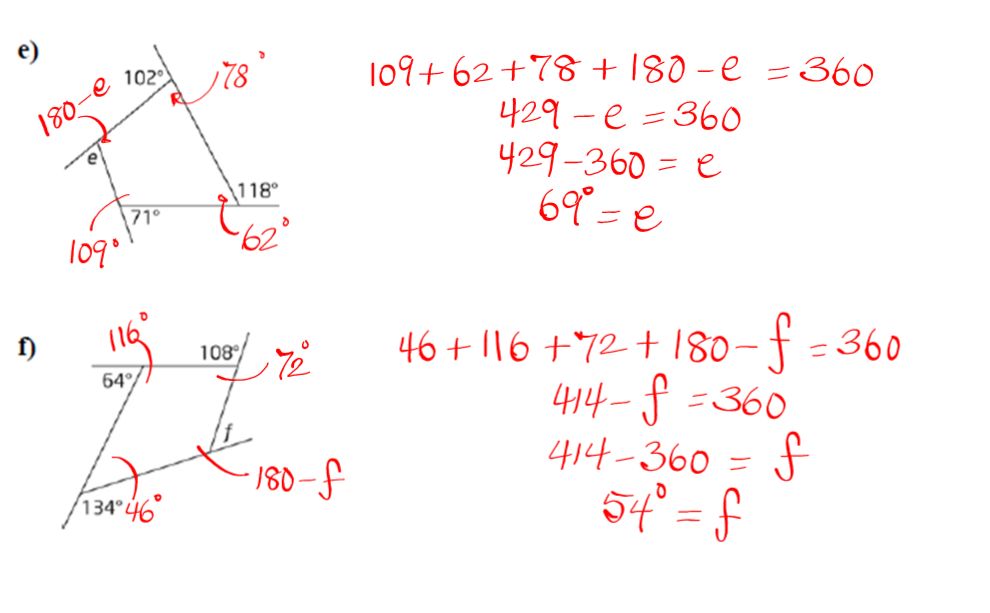 e)
102°
78°
180-e
e
118°
71°
109°
62°
109+62+78+180-e = 360
429-e = 360
429-360 = e
69° = e
f)
116°
108°
72°
64°
f
180-f
134° 46°
46+116+72+180-f = 360
414-f = 360
414-360 = f
54° = f